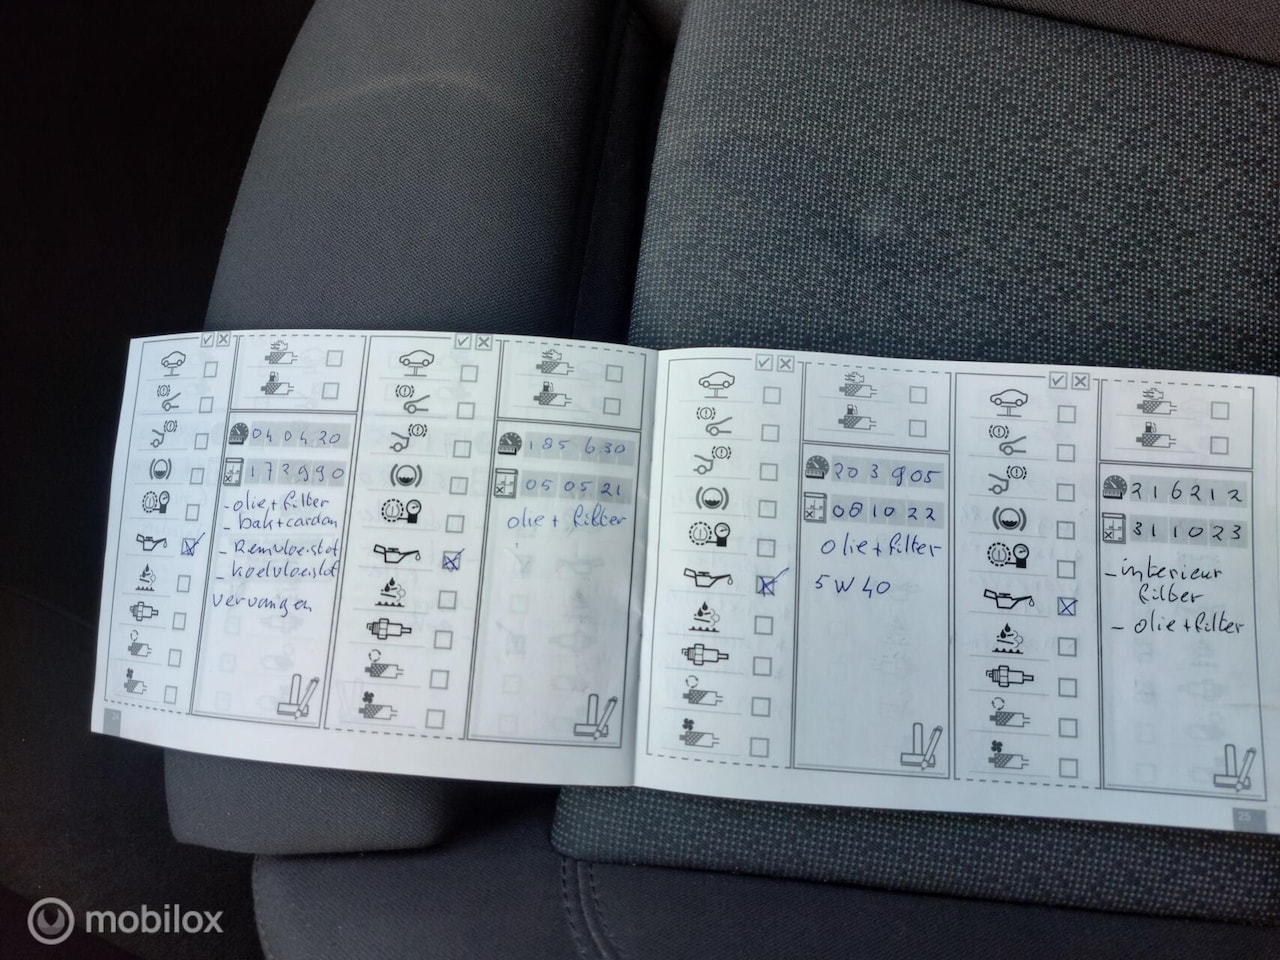 040420
172990
- olie + filter
- bak + cardan
- Remvloeistof
- koelvloeistof
vervangen
185 630
050521
olie + filter
203905
081022
olie + filter
5W40
216212
311023
- interieur
filter
- olie + filter
25
mobilox